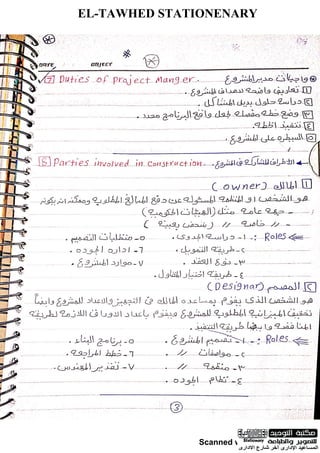 EL-TAWHED STATIONENARY
DATE OBJECT
7 Duties of Project Manger. واجبات مدير المشروع
1 تعاريف واضحة لأهداف المشروع.
2 دراسة حلول بديل المشاكل.
3 وضع خطة مفصلة لجعل واقع البرنامج محدد.
4 تنفيذ الخطة.
5 السيطرة على المشروع.
8 Parties involved in construction. الأطراف المشاركة في المشروع
1 المالك (owner)
هو الشخص أو المنظمة المسئولة عن دفع المبالغ المطلوبة ويمكنه أن يكون
- جهة عامة مثل (الهيئات الحكومية)
- // خاصة // (شخص رقيبة)
Roles :- 1- دراسة الجدوى. 5- متطلبات التصميم.
2- طريقة التمويل. 6- إدارة الجودة.
3- نوع العقد. 7- موارد المشروع.
4- طريقة اختيار المقاول.
2 المصمم (Designar)
هو الشخص الذي يقوم بمساعدة المالك في التجهيز والإعداد للمشروع وأيضاً
تحقيق الميزانية المطلوبة للمشروع فيقوم بإعداد الأوراق اللازمة لطريقة
المناقصة وأيضاً طريقة التنفيذ.
Roles :- 1- تصميم المشروع. 5- برنامج البناء.
2- مواصفات //. 6- خطط المراجعة.
3- منظمة //. 7- تقدير المهندس.
4- نظام الجودة.
3
مكتبة التوحيد
للتصوير والطباعة
Scanned
المساعيد الإداري آخر شارع الإداري